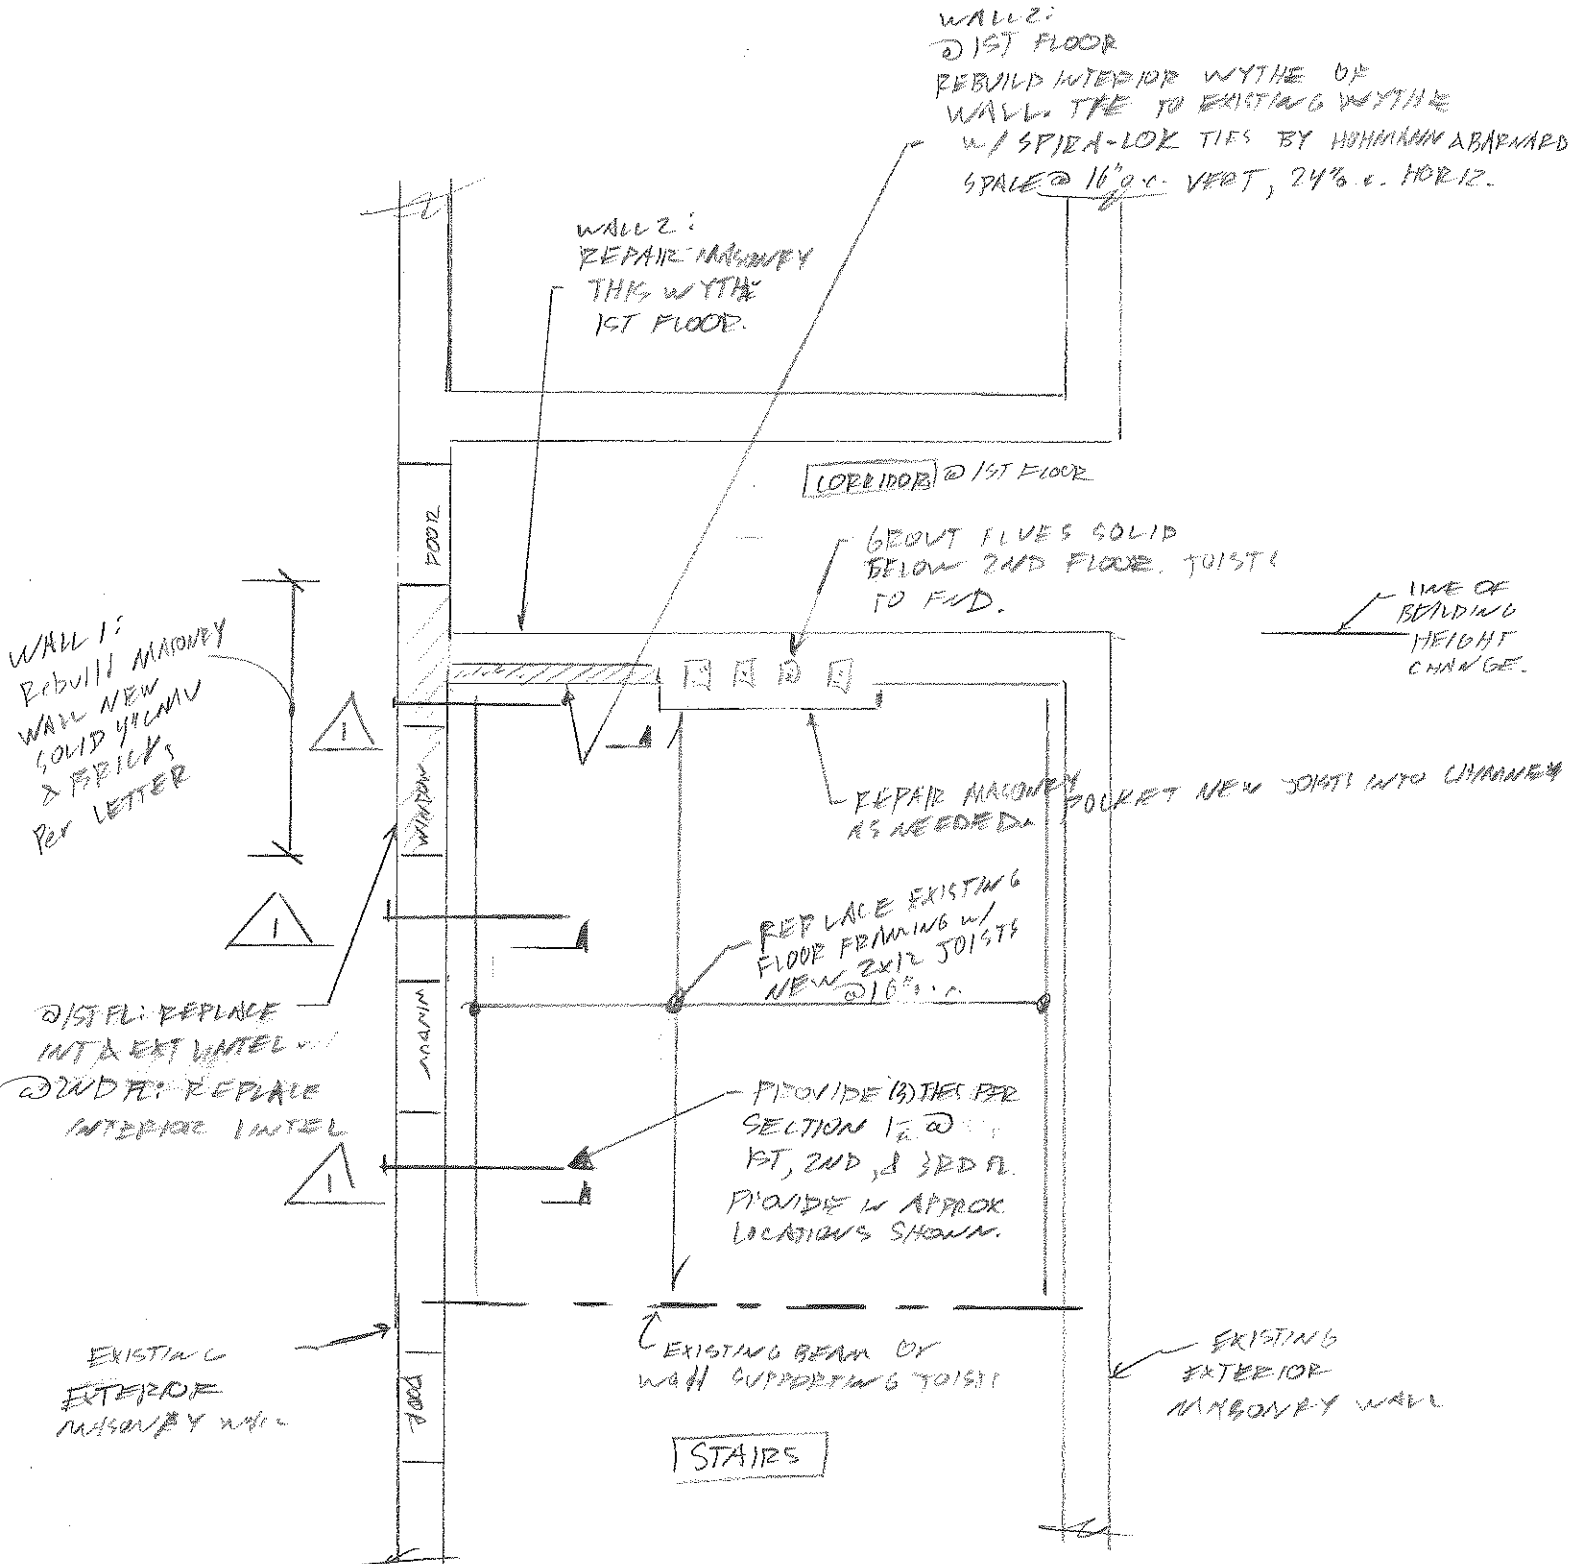 WALL 2:
@ 1ST FLOOR
REBUILD INTERIOR WYTHE OF
WALL. TIE TO EXISTING WYTHE
W/ SPIRA-LOK TIES BY HOHMANN & BARNARD
SPACE @ 16" o.c. VERT, 24" o.c. HORIZ.
WALL 2:
REPAIR MASONRY
THIS WYTHE
1ST FLOOR.
CORRIDOR @ 1ST FLOOR
DOOR
GROUT FLUES SOLID
BELOW 2ND FLOOR JOISTS
TO FND.
LINE OF
BUILDING
HEIGHT
CHANGE.
WALL 1:
Rebuild MASONRY
WALL NEW
SOLID 4" CMU
& BRICK,
Per LETTER
1
WINDOW
REPAIR MASONRY
AS NEEDED.
POCKET NEW JOISTS INTO CHIMNEY
1
REPLACE EXISTING
FLOOR FRAMING W/
NEW 2x12 JOISTS
@ 16" o.c.
@ 1ST FL: REPLACE
INT & EXT LINTEL
@ 2ND FL: REPLACE
INTERIOR LINTEL
WINDOW
1
PROVIDE (3) TIES PER
SECTION 1 @
1ST, 2ND, & 3RD FL.
PROVIDE IN APPROX
LOCATIONS SHOWN.
EXISTING
EXTERIOR
MASONRY WALL
DOOR
EXISTING BEAM OR
WALL SUPPORTING JOISTS
EXISTING
EXTERIOR
MASONRY WALL
STAIRS